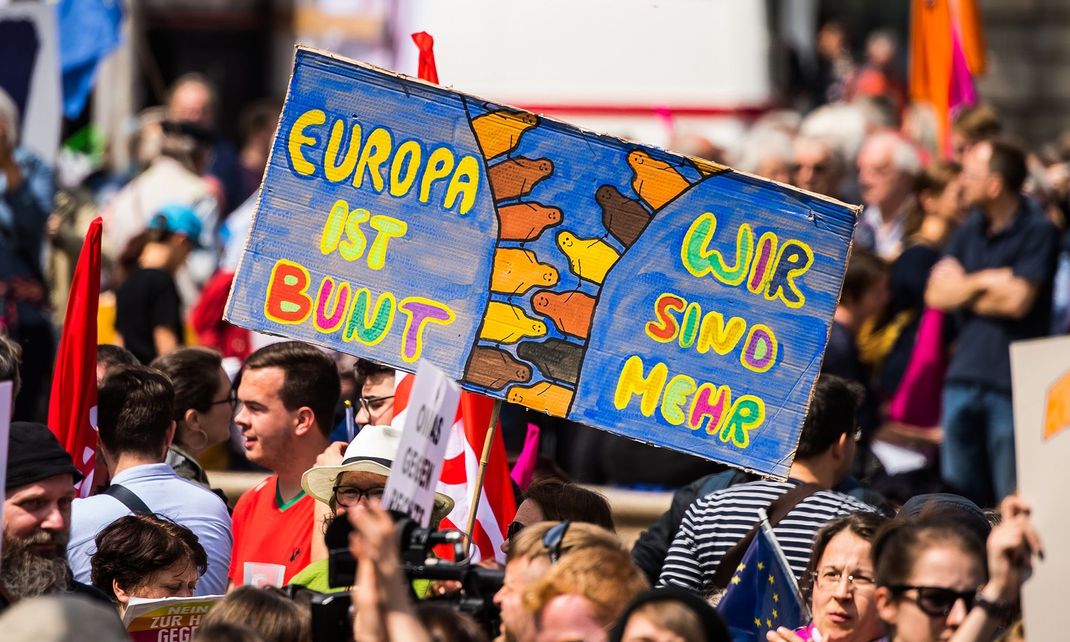 EUROPA
IST
BUNT
WIR
SIND
MEHR
OMAS
GEGEN
RECHTS
NEIN
ZUR H
GEG